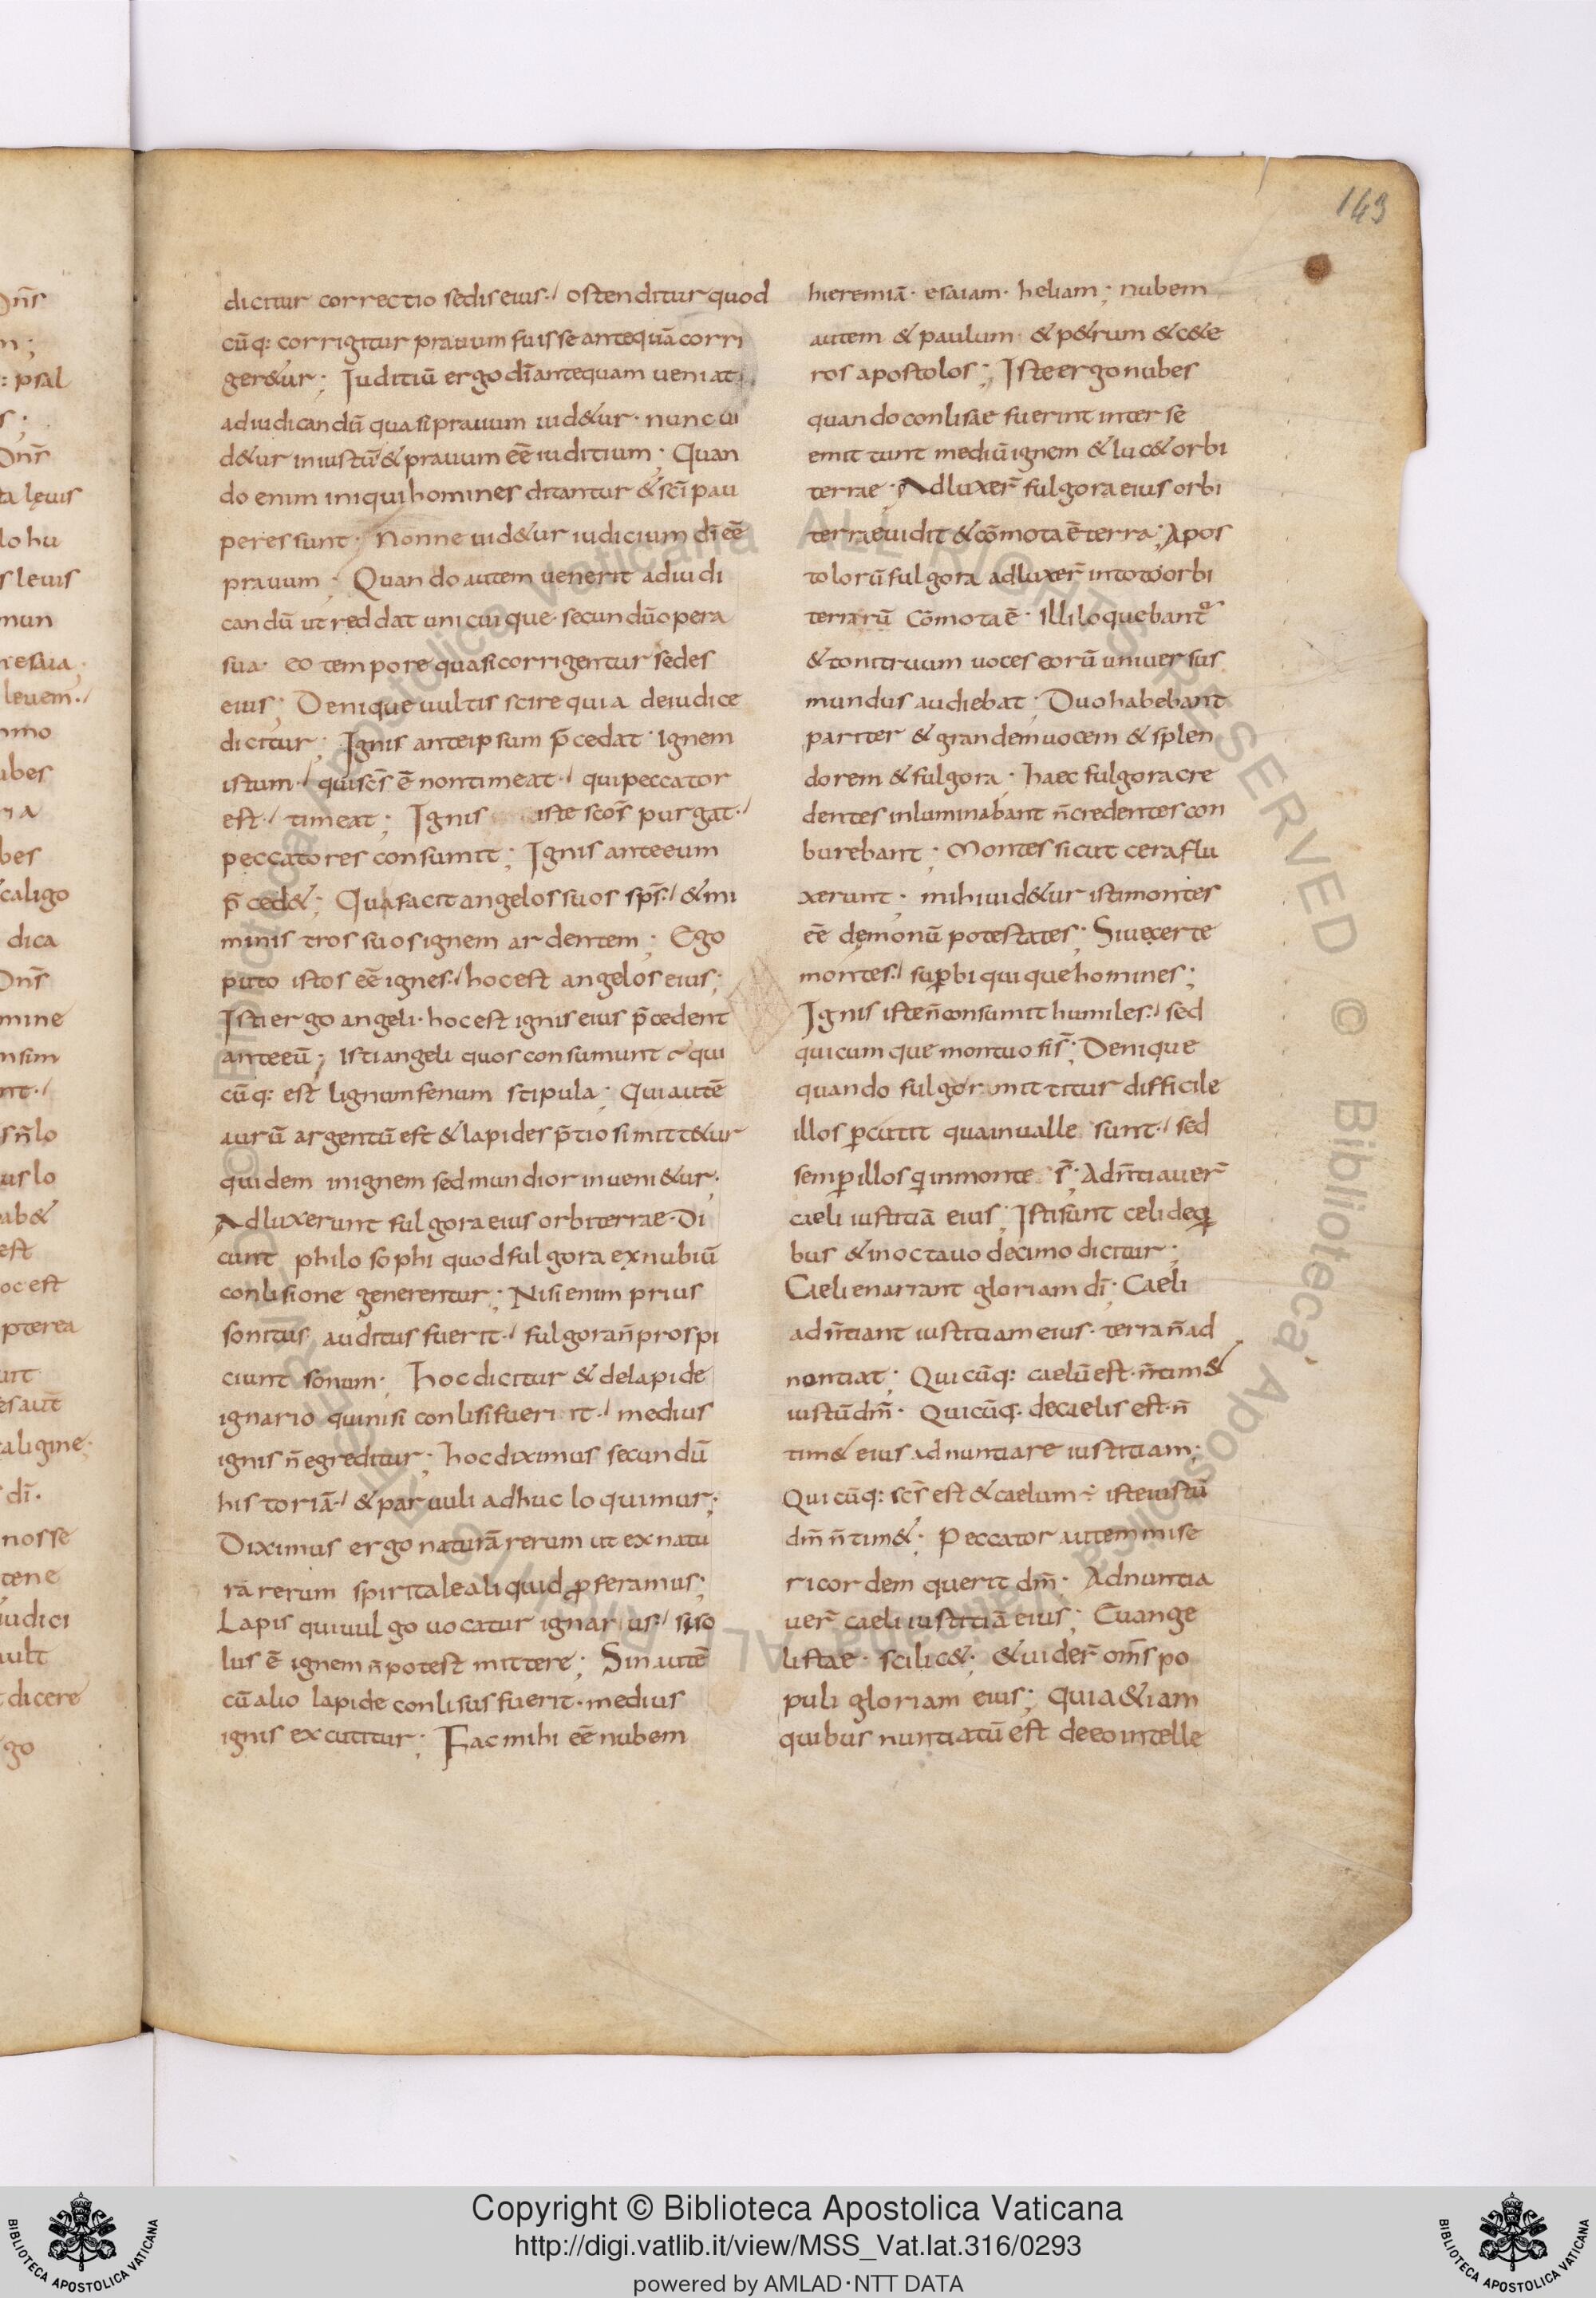 143
dicitur correctio sedis eius·/ ostenditur quod
cūq: corrigitur prauum fuisse antequā corri
ger&ur; Iuditiū ergo dī antequam ueniat
ad iudicandū quasi prauum uid&ur· nunc ui
d&ur iniustū & prauum eē iuditium; Quan
do enim iniqui homines ditantur & sc̄i pau
peres sunt· Nonne uid&ur iudicium dī eē
prauum; Quando autem uenerit ad iudi
candū ut reddat unicuique· secundū opera
sua· eo tempore quasi corrigentur sedes
eius; Denique uultis scire quia de iudice
dicitur; Ignis ante ipsum p̄cedat· Ignem
istum·/ qui sc̄s ē non timeat·/ qui peccator
est·/ timeat; Ignis iste sc̄os purgat·/
peccatores consumit; Ignis ante eum
p̄ced&; Qua facit angelos suos sp̄s·/ & mi
minis tros suos ignem ardentem; Ego
puto istos eē ignes·/ hoc est angelos eius;
Isti ergo angeli· hoc est ignis eius p̄cedent
ante eū; Isti angeli quos consumunt ~ qui
cūq: est lignum fenum stipula; Qui autē
aurū argentū est & lapides p̄tiosi mitt&ur
quidem in ignem sed mundior inueni&ur·
Adluxerunt fulgora eius orbi terrae· Di
cunt philosophi quod fulgora ex nubiū
conlisione generentur; Nisi enim prius
sonitus auditus fuerit·/ fulgora n̄ prospi
ciunt sonum; hoc dicitur & de lapide
ignario qui nisi conlisi fuerit·/ medius
ignis n̄ egreditur; hoc diximus secundū
historiā·/ & paruuli adhuc loquimur;
Diximus ergo naturā rerum ut ex natu
ra rerum spiritale aliquid ꝓferamus;
Lapis qui uulgo uocatur ignarius·/ si so
lus ē ignem n̄ potest mittere; Sin autē
cū alio lapide conlisus fuerit· medius
ignis excutitur; Fac mihi eē nubem
hieremiā· esaiam· heliam; nubem
autem & paulum· & p&rum & c&e
ros apostolos; Iste ergo nubes
quando conlisae fuerint inter se
emittunt mediū ignem & luc& orbi
terrae; Adluxer̄ fulgora eius orbi
terrae uidit & cōmota ē terra; Apos
tolorū fulgora adluxer̄ in toto orbi
terrarū cōmota ē· Illi loquebant᷑
& tonitruum uoces eorū uniuersus
mundus audiebat; Duo habebant
pariter & grandem uocem & splen
dorem & fulgora· haec fulgora cre
dentes inluminabant n̄ credentes con
burebant; Montes sicut cera flu
xerunt; mihi uid&ur isti montes
eē dęmonū potestates; Siue certe
montes·/ suꝑbi qui que homines;
Ignis iste n̄ consumit humiles·/ sed
quicumque montuosis̄; Denique
quando fulgor mittitur difficile
illos ꝑcutit qua in ualle sunt·/ sed
semꝑ illos q in monte s̄; Adn̄tiauer̄
caeli iustitiā eius; Isti sunt celi de q
bus & in octauo decimo dicitur;
Caeli enarrant gloriam dī; Caeli
adn̄tiant iustitiam eius· terra n̄ ad
nontiat; Qui cūq: caelū est· n̄ tim&
iustū dm̄· Qui cūq· de caelis est· n̄
tim& eius adnuntiare iustitiam;
Qui cūq: sc̄s est & caelum· iste iustū
dm̄ n̄ tim&; Peccator autem mise
ricordem querit dm̄· Adnuntia
uer̄ caeli iustitiā eius; Euange
listae· scilic&; & uider̄ om̄s po
puli gloriam eius; Quia & iam
quibus nuntiatū est de eo intelle
Copyright © Biblioteca Apostolica Vaticana
http://digi.vatlib.it/view/MSS_Vat.lat.316/0293
powered by AMLAD·NTT DATA